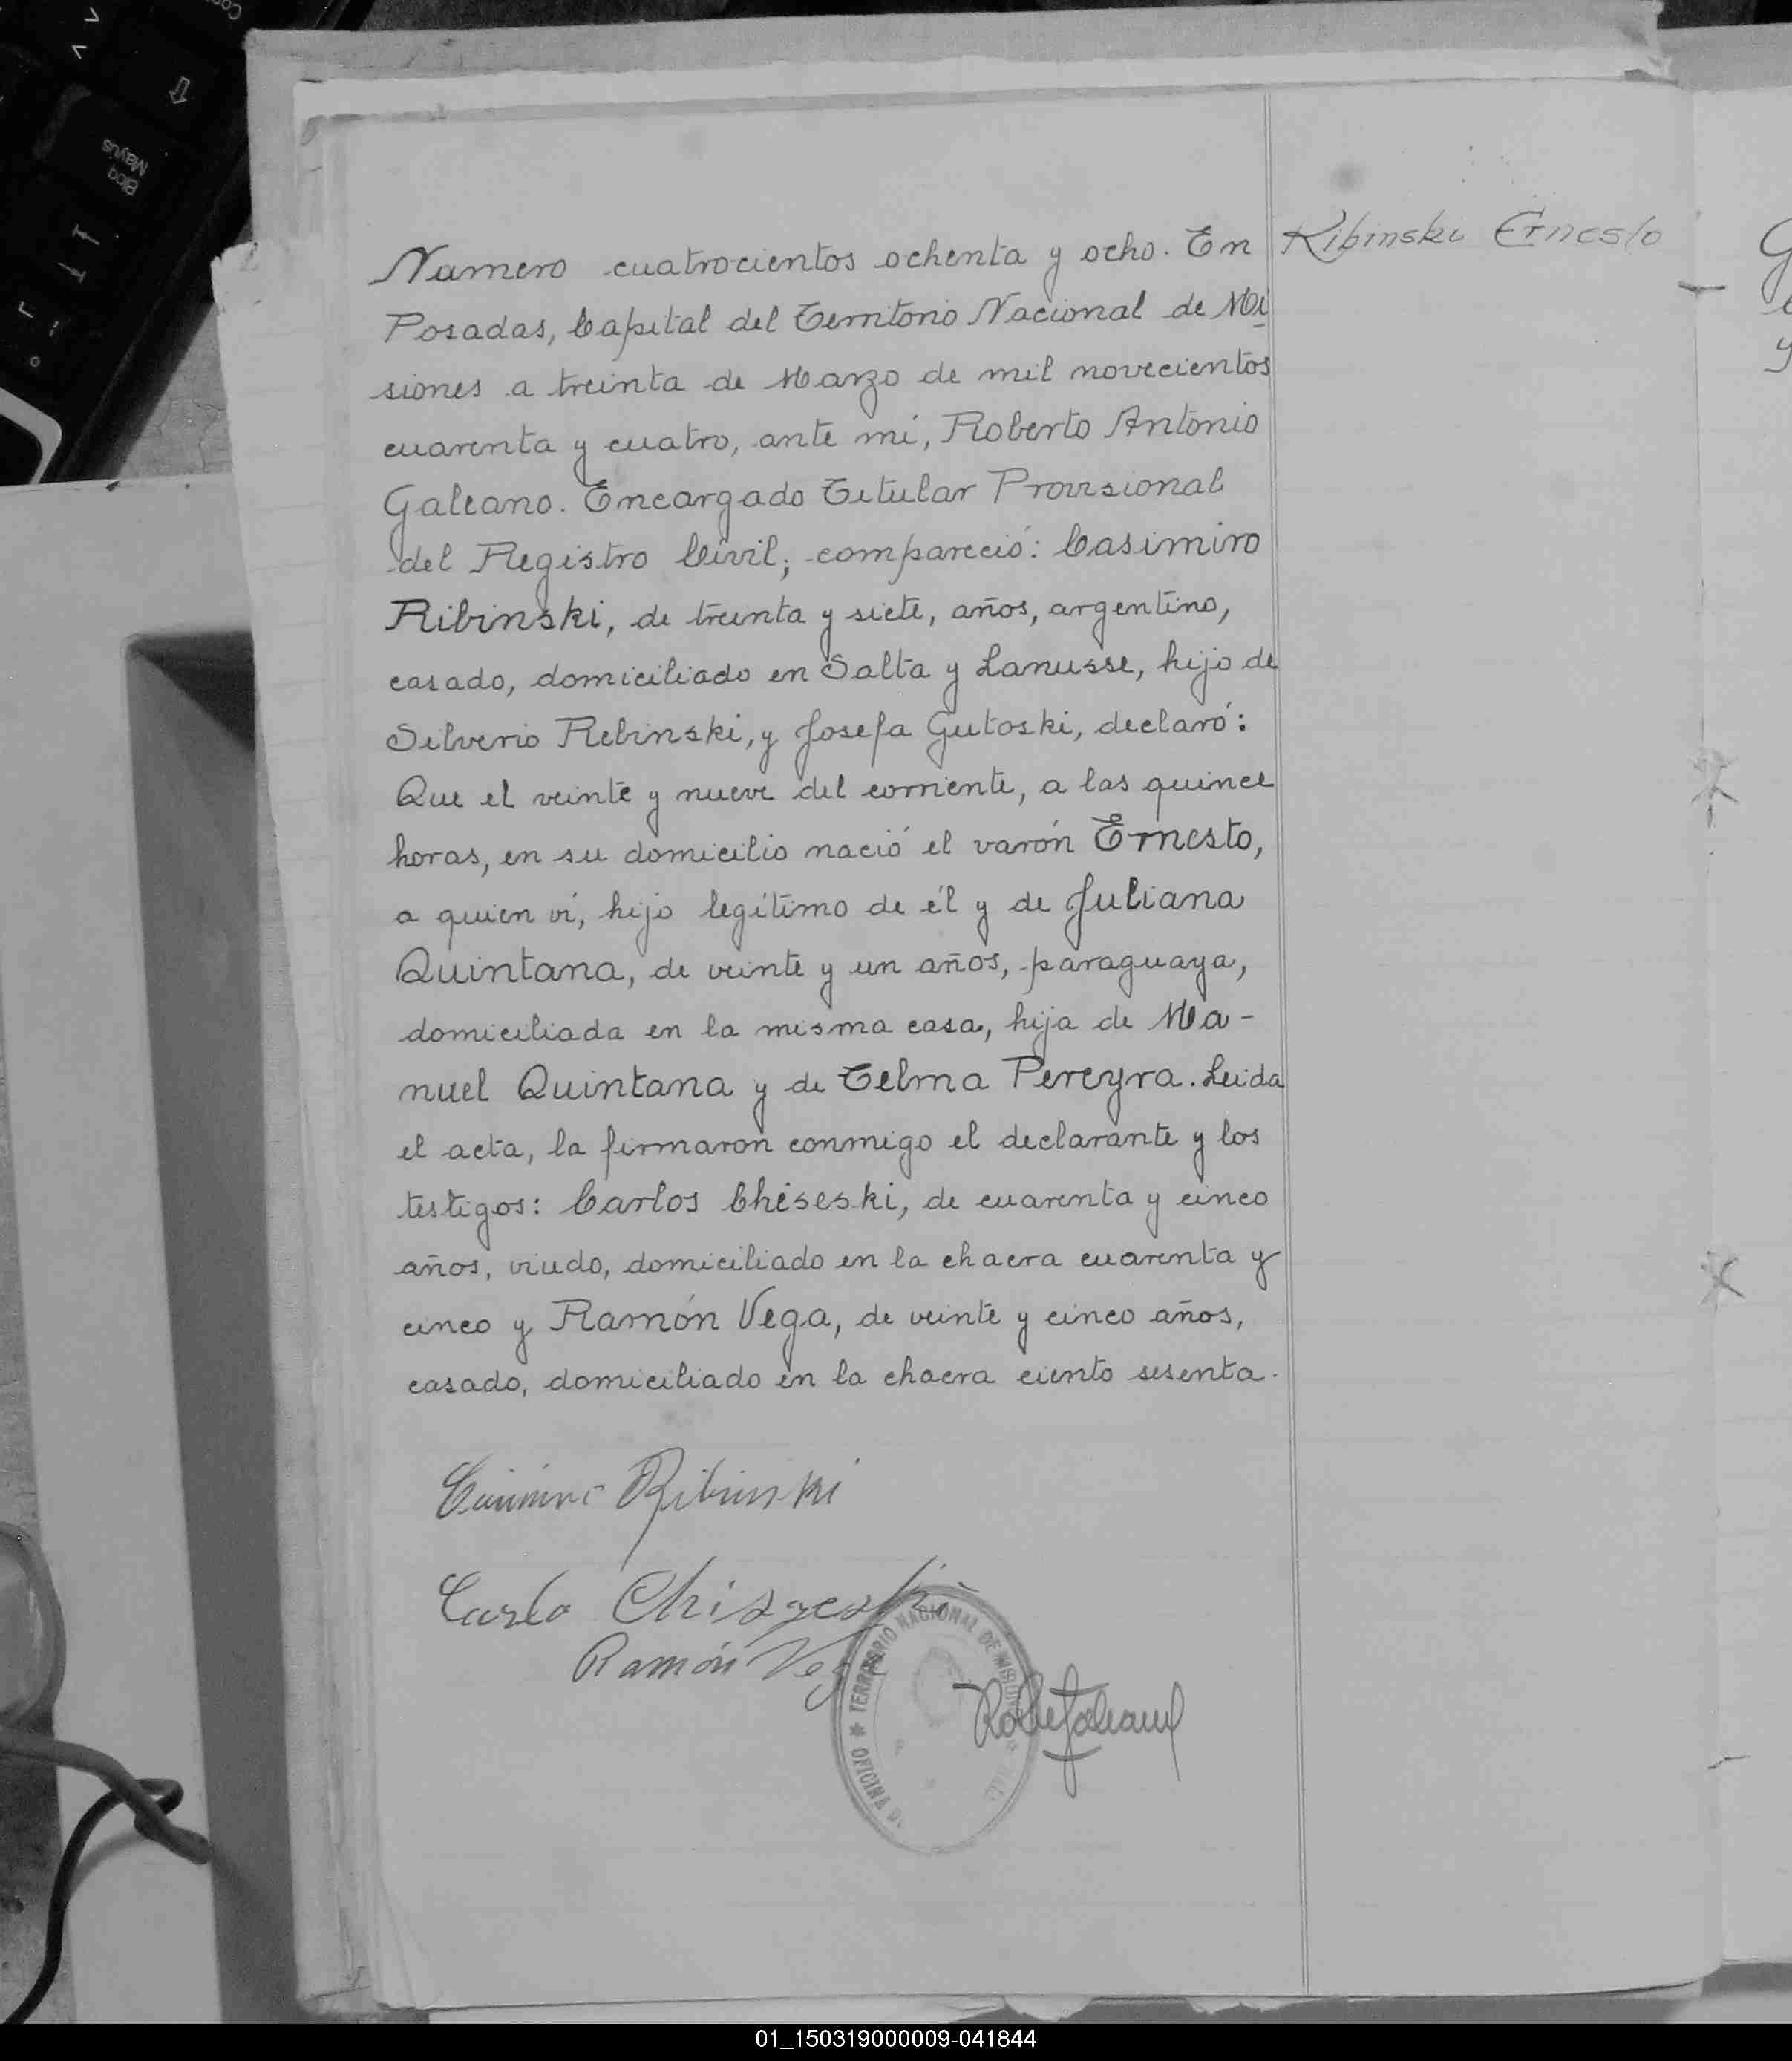 Ribinski Ernesto
Numero cuatrocientos ochenta y ocho. En
Posadas, Capital del Territorio Nacional de Mi
siones a treinta de Marzo de mil novecientos
cuarenta y cuatro, ante mi, Roberto Antonio
Galeano. Encargado Titular Provisional
del Registro Civil; compareció: Casimiro
Ribinski, de treinta y siete, años, argentino,
casado, domiciliado en Salta y Lanusse, hijo de
Silverio Rebinski, y Josefa Gutoski, declaró:
Que el veinte y nueve del corriente, a las quince
horas, en su domicilio nació el varón Ernesto,
a quien ví, hijo legítimo de él y de Juliana
Quintana, de veinte y un años, paraguaya,
domiciliada en la misma casa, hija de Ma-
nuel Quintana y de Telma Pereyra. Leida
el acta, la firmaron conmigo el declarante y los
testigos: Carlos Chiseski, de cuarenta y cinco
años, viudo, domiciliado en la chacra cuarenta y
cinco y Ramón Vega, de veinte y cinco años,
casado, domiciliado en la chacra ciento sesenta.
Ribinski
Carlo Chiszeski
Ramón Vega
TERRITORIO NACIONAL DE MISIONES
OFICINA
01_150319000009-041844